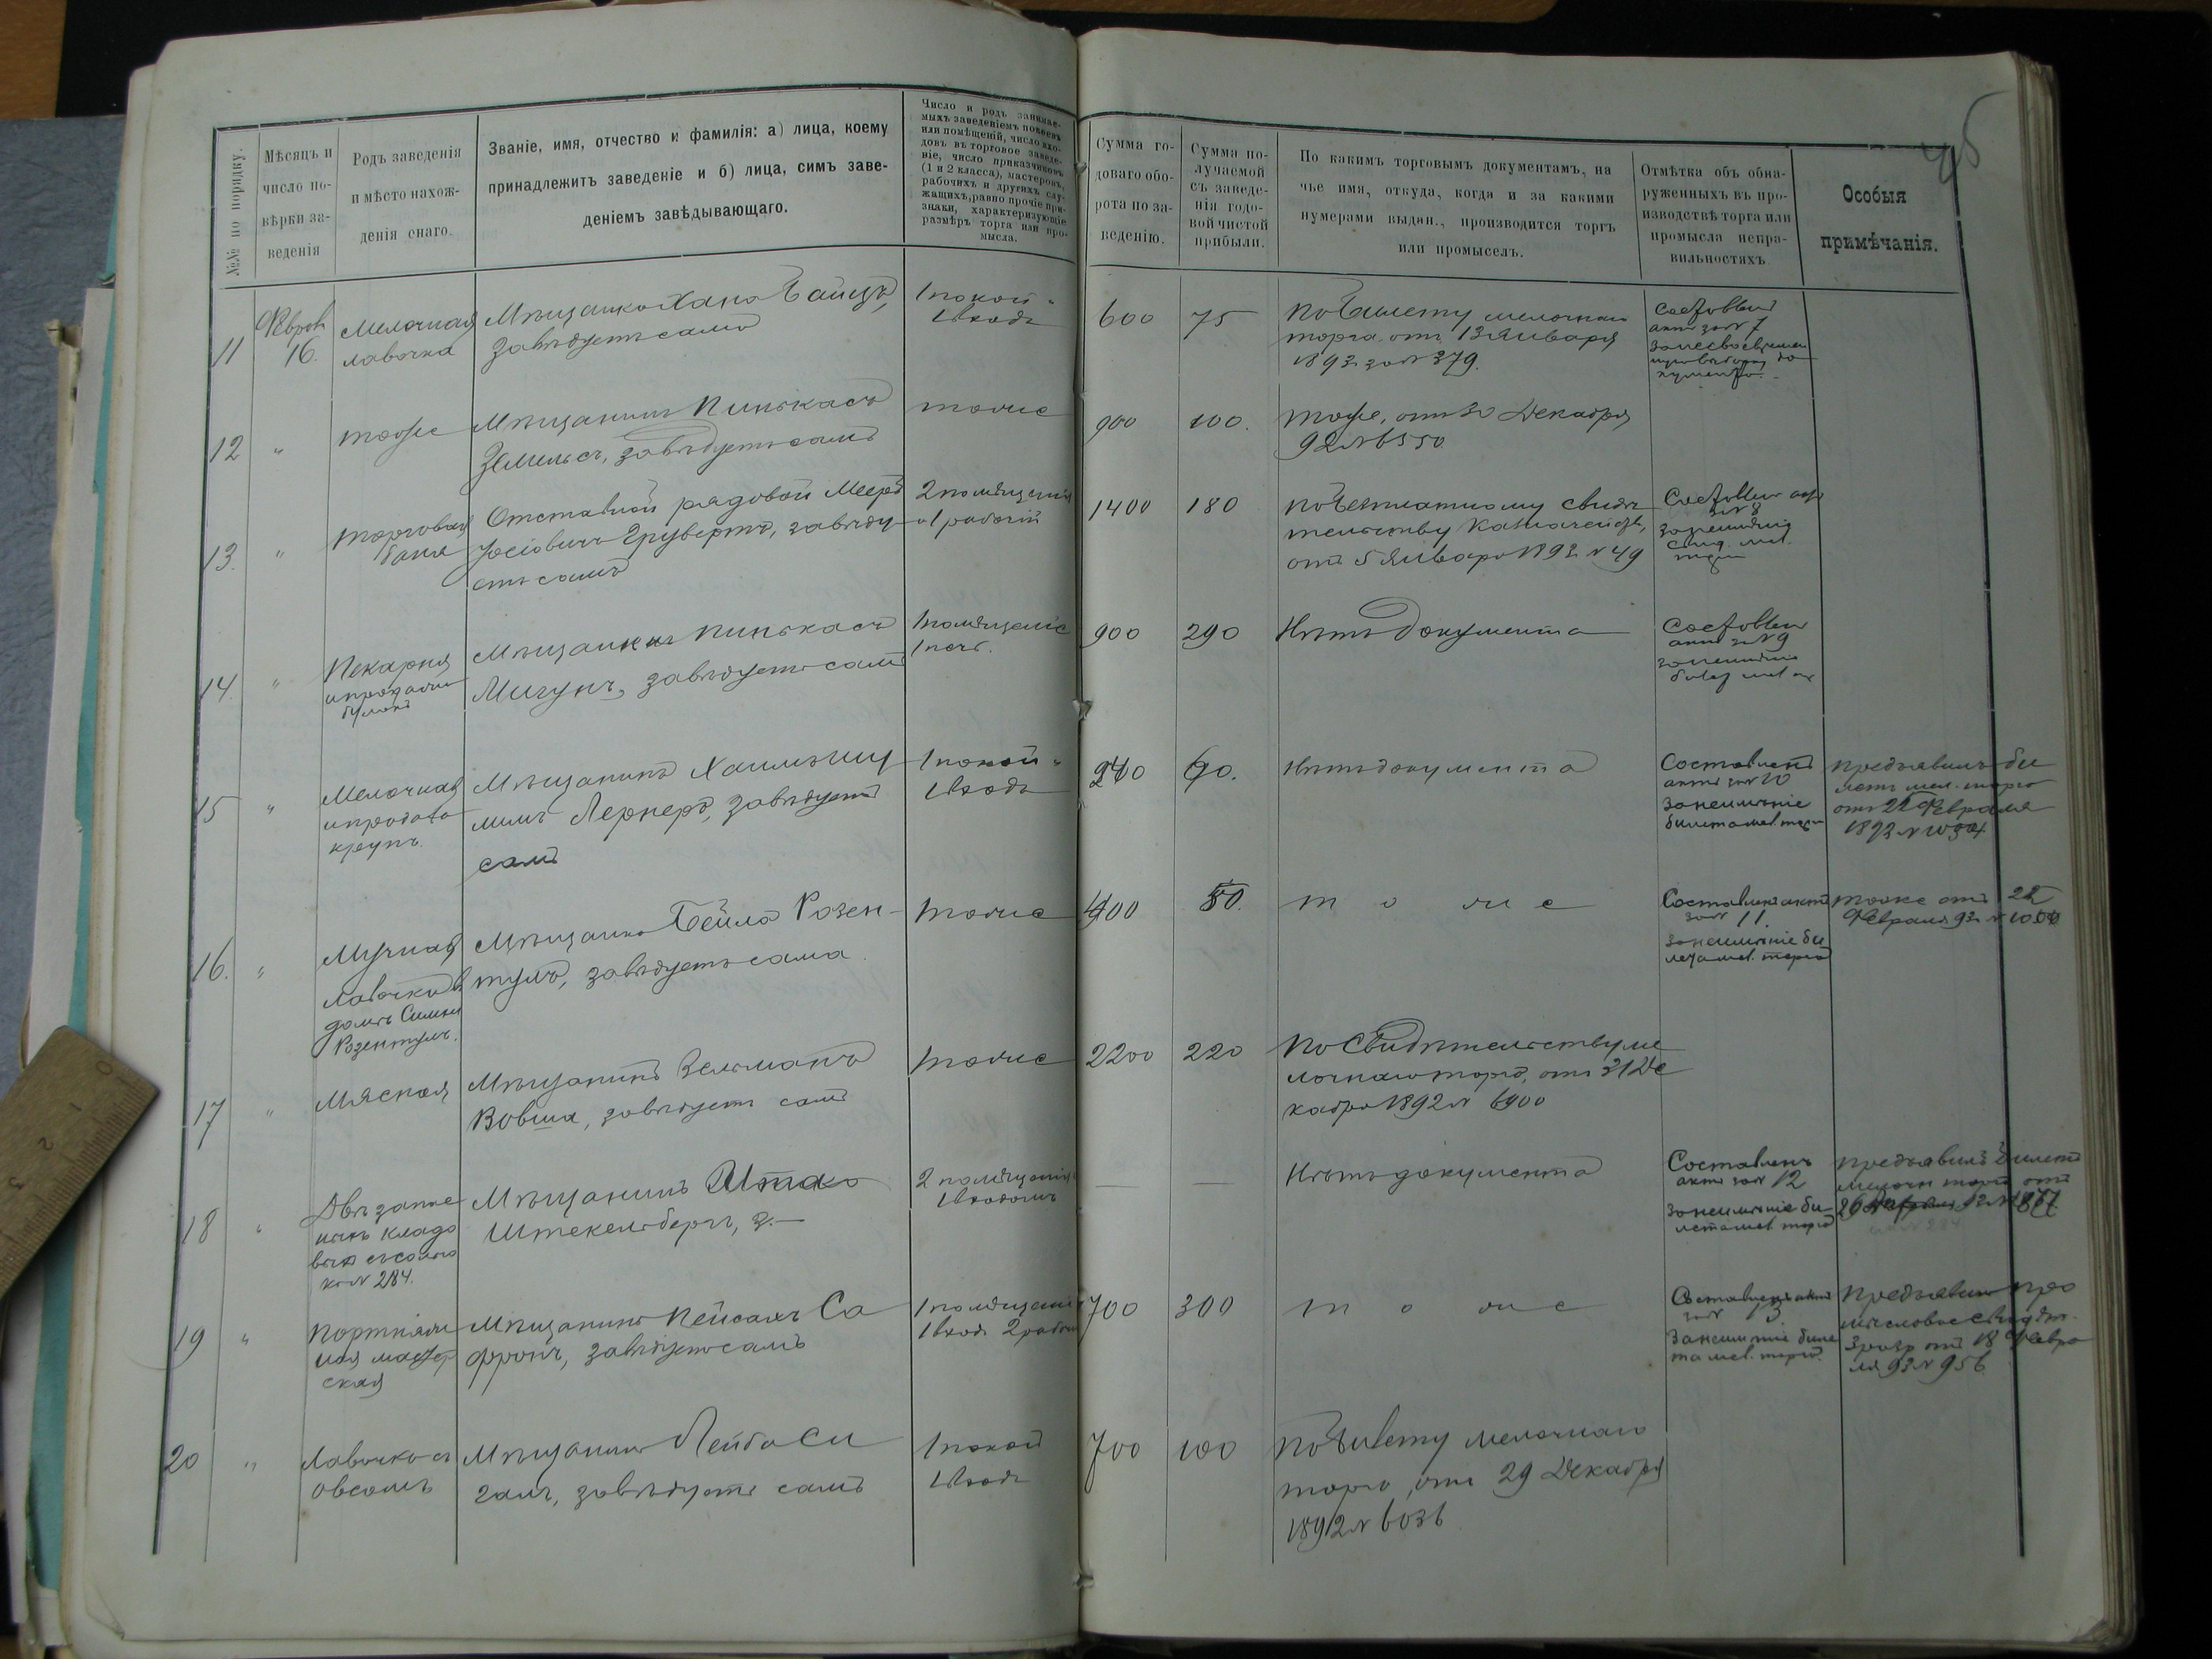 45
№№ по порядку.
Мѣсяцъ и
число по-
вѣрки за-
веденія
Родъ заведенія
и мѣсто нахож-
денія онаго.
Званіе, имя, отчество и фамилія: а) лица, коему
принадлежитъ заведеніе и б) лица, симъ заве-
деніемъ завѣдывающаго.
Число и родъ занимае-
мыхъ заведеніемъ покоевъ
или помѣщеній, число вхо-
довъ въ торговое заведе-
ніе, число приказчиковъ
(1 и 2 класса), мастеровъ,
рабочихъ и другихъ слу-
жащихъ, равно прочіе при-
знаки, характеризующіе
размѣръ торга или про-
мысла.
Сумма го-
доваго обо-
рота по за-
веденію.
Сумма по-
лучаемой
съ заведе-
нія годо-
вой чистой
прибыли.
По какимъ торговымъ документамъ, на
чье имя, откуда, когда и за какими
нумерами выдан., производится торгъ
или промыселъ.
Отмѣтка объ обна-
руженныхъ въ про-
изводствѣ торга или
промысла непра-
вильностяхъ.
Особыя
примѣчанія.
11
Февраля
16.
Мелочная
лавочка
Мѣщанка Хана Вайсъ,
завѣдуетъ сама
1 покой
1 входъ
600
75
По билету мелочнаго
торга отъ 13 Января
1893 за № 379.
Составленъ
актъ за № 7
12
"
тоже
Мѣщанинъ Пинькасъ
завѣдуетъ самъ
тоже
900
100.
тоже, отъ 30 Декабря
92 № 6550
13.
"
торговая
баня
Отставной рядовой Мееръ
Іосіовичъ Грувертъ, завѣду-
етъ самъ
2 помѣщенія
и 1 рабочій
1400
180
По безплатному свидѣ-
тельству Казначейства,
отъ 5 Января 1893 № 49
Составленъ актъ
№ 8
14.
"
Пекарня
и продажа
булокъ
Мѣщанинъ Пинькасъ
Мигунъ, завѣдуетъ самъ
1 помѣщеніе
1 печь.
900
290
Нѣтъ документа
Составленъ
актъ за № 9
15
"
Мелочная
и продажа
крупъ.
Мѣщанинъ Хаимъ Шу
лимъ Лернеръ, завѣдуетъ
самъ
1 покой
1 входъ
Нѣтъ документа
Составленъ
актъ за № 10
за неимѣніе
билета мел. торга
предъявилъ би
летъ мел. торга
Февраля
16.
"
Мучная
лавочка въ
домѣ Симхи
Розентулъ.
Мѣщанка Бейла Розен-
тулъ, завѣдуетъ сама
тоже
400
50.
тоже
Составленъ актъ
за № 11.
за неимѣніе би
лета мел. торга
тоже отъ 22
Февраля 93 №
17
"
Мясная
Мѣщанинъ Зельманъ
Вовша, завѣдуетъ самъ
тоже
2200
220
По свидѣтельству ме
лочнаго торга, отъ 31 Де
кабря 1892 № 6900
18
"
кладо
№ 284.
Мѣщанинъ
Штекельбергъ, з.—
2 помѣщенія
1 входомъ
— —
Нѣтъ документа
Составленъ
актъ за № 12
за неимѣніе би-
лета мел. торга
предъявилъ билетъ
мелочн. торга отъ
19
"
Портняж
ная мастер
ская
Мѣщанинъ Пейсахъ Са
фронъ, завѣдуетъ самъ
1 помѣщеніе
1 входъ 2 рабоч
700
300
тоже
Составленъ актъ
за № 13
за неимѣніе биле
та мел. торга.
Предъявилъ про
мысловое свидѣт.
3 разр. отъ 18 Февра
ля 93 № 956
20
"
Лавочка съ
овсомъ
Мѣщанинъ Лейба Си
галъ, завѣдуетъ самъ
1 покой
1 входъ
700
100
По билету мелочнаго
торга, отъ 29 Декабря
1892 № 6036